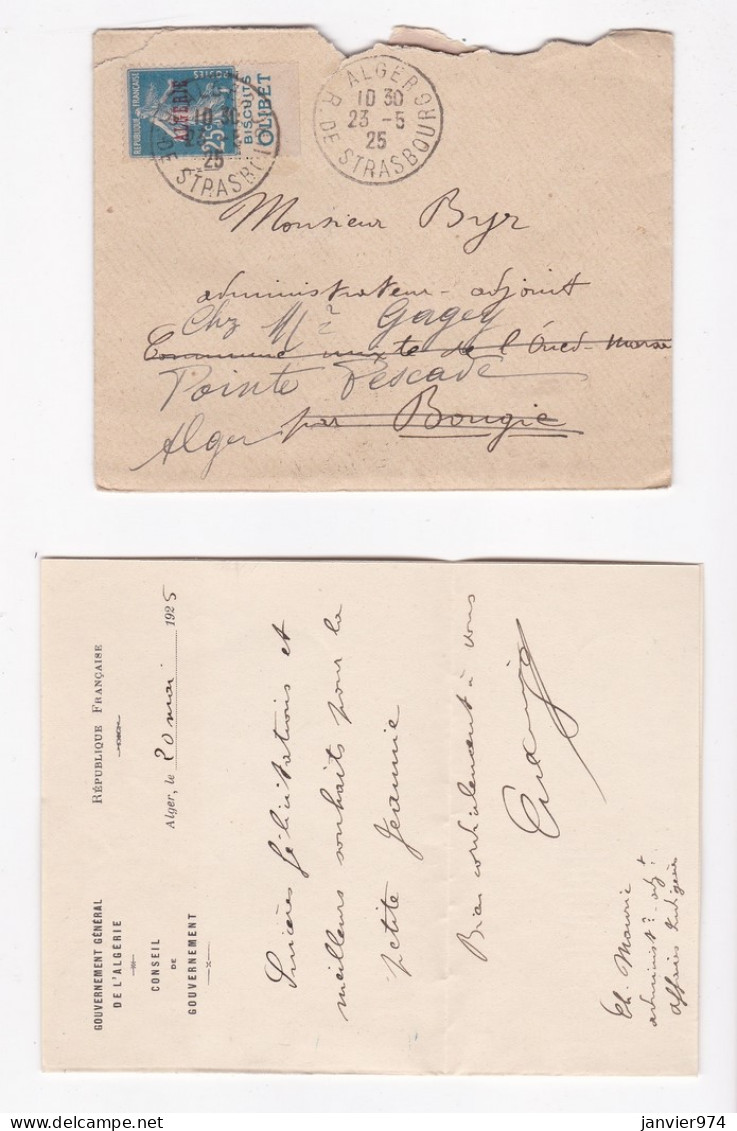 RÉPUBLIQUE FRANÇAISE
POSTES
25c
ALGÉRIE
BISCUITS
OLIBET
10 30
25
DE STRASBOURG
ALGER
10 30
23 -5
25
R. DE STRASBOURG
Monsieur Byr
administrateur-adjoint
Chz Mr Gagey
Commune mixte de l'Oued-Marsa
Pointe Pescade
par Bougie
Alger
GOUVERNEMENT GÉNÉRAL
DE L'ALGÉRIE
CONSEIL
DE
GOUVERNEMENT
RÉPUBLIQUE FRANÇAISE
Alger, le 20 mai 1925
Sincères félicitations et
meilleurs souhaits pour la
petite Jeannie
Bien cordialement à vous
administ? adjt
affaires indigènes
janvier974